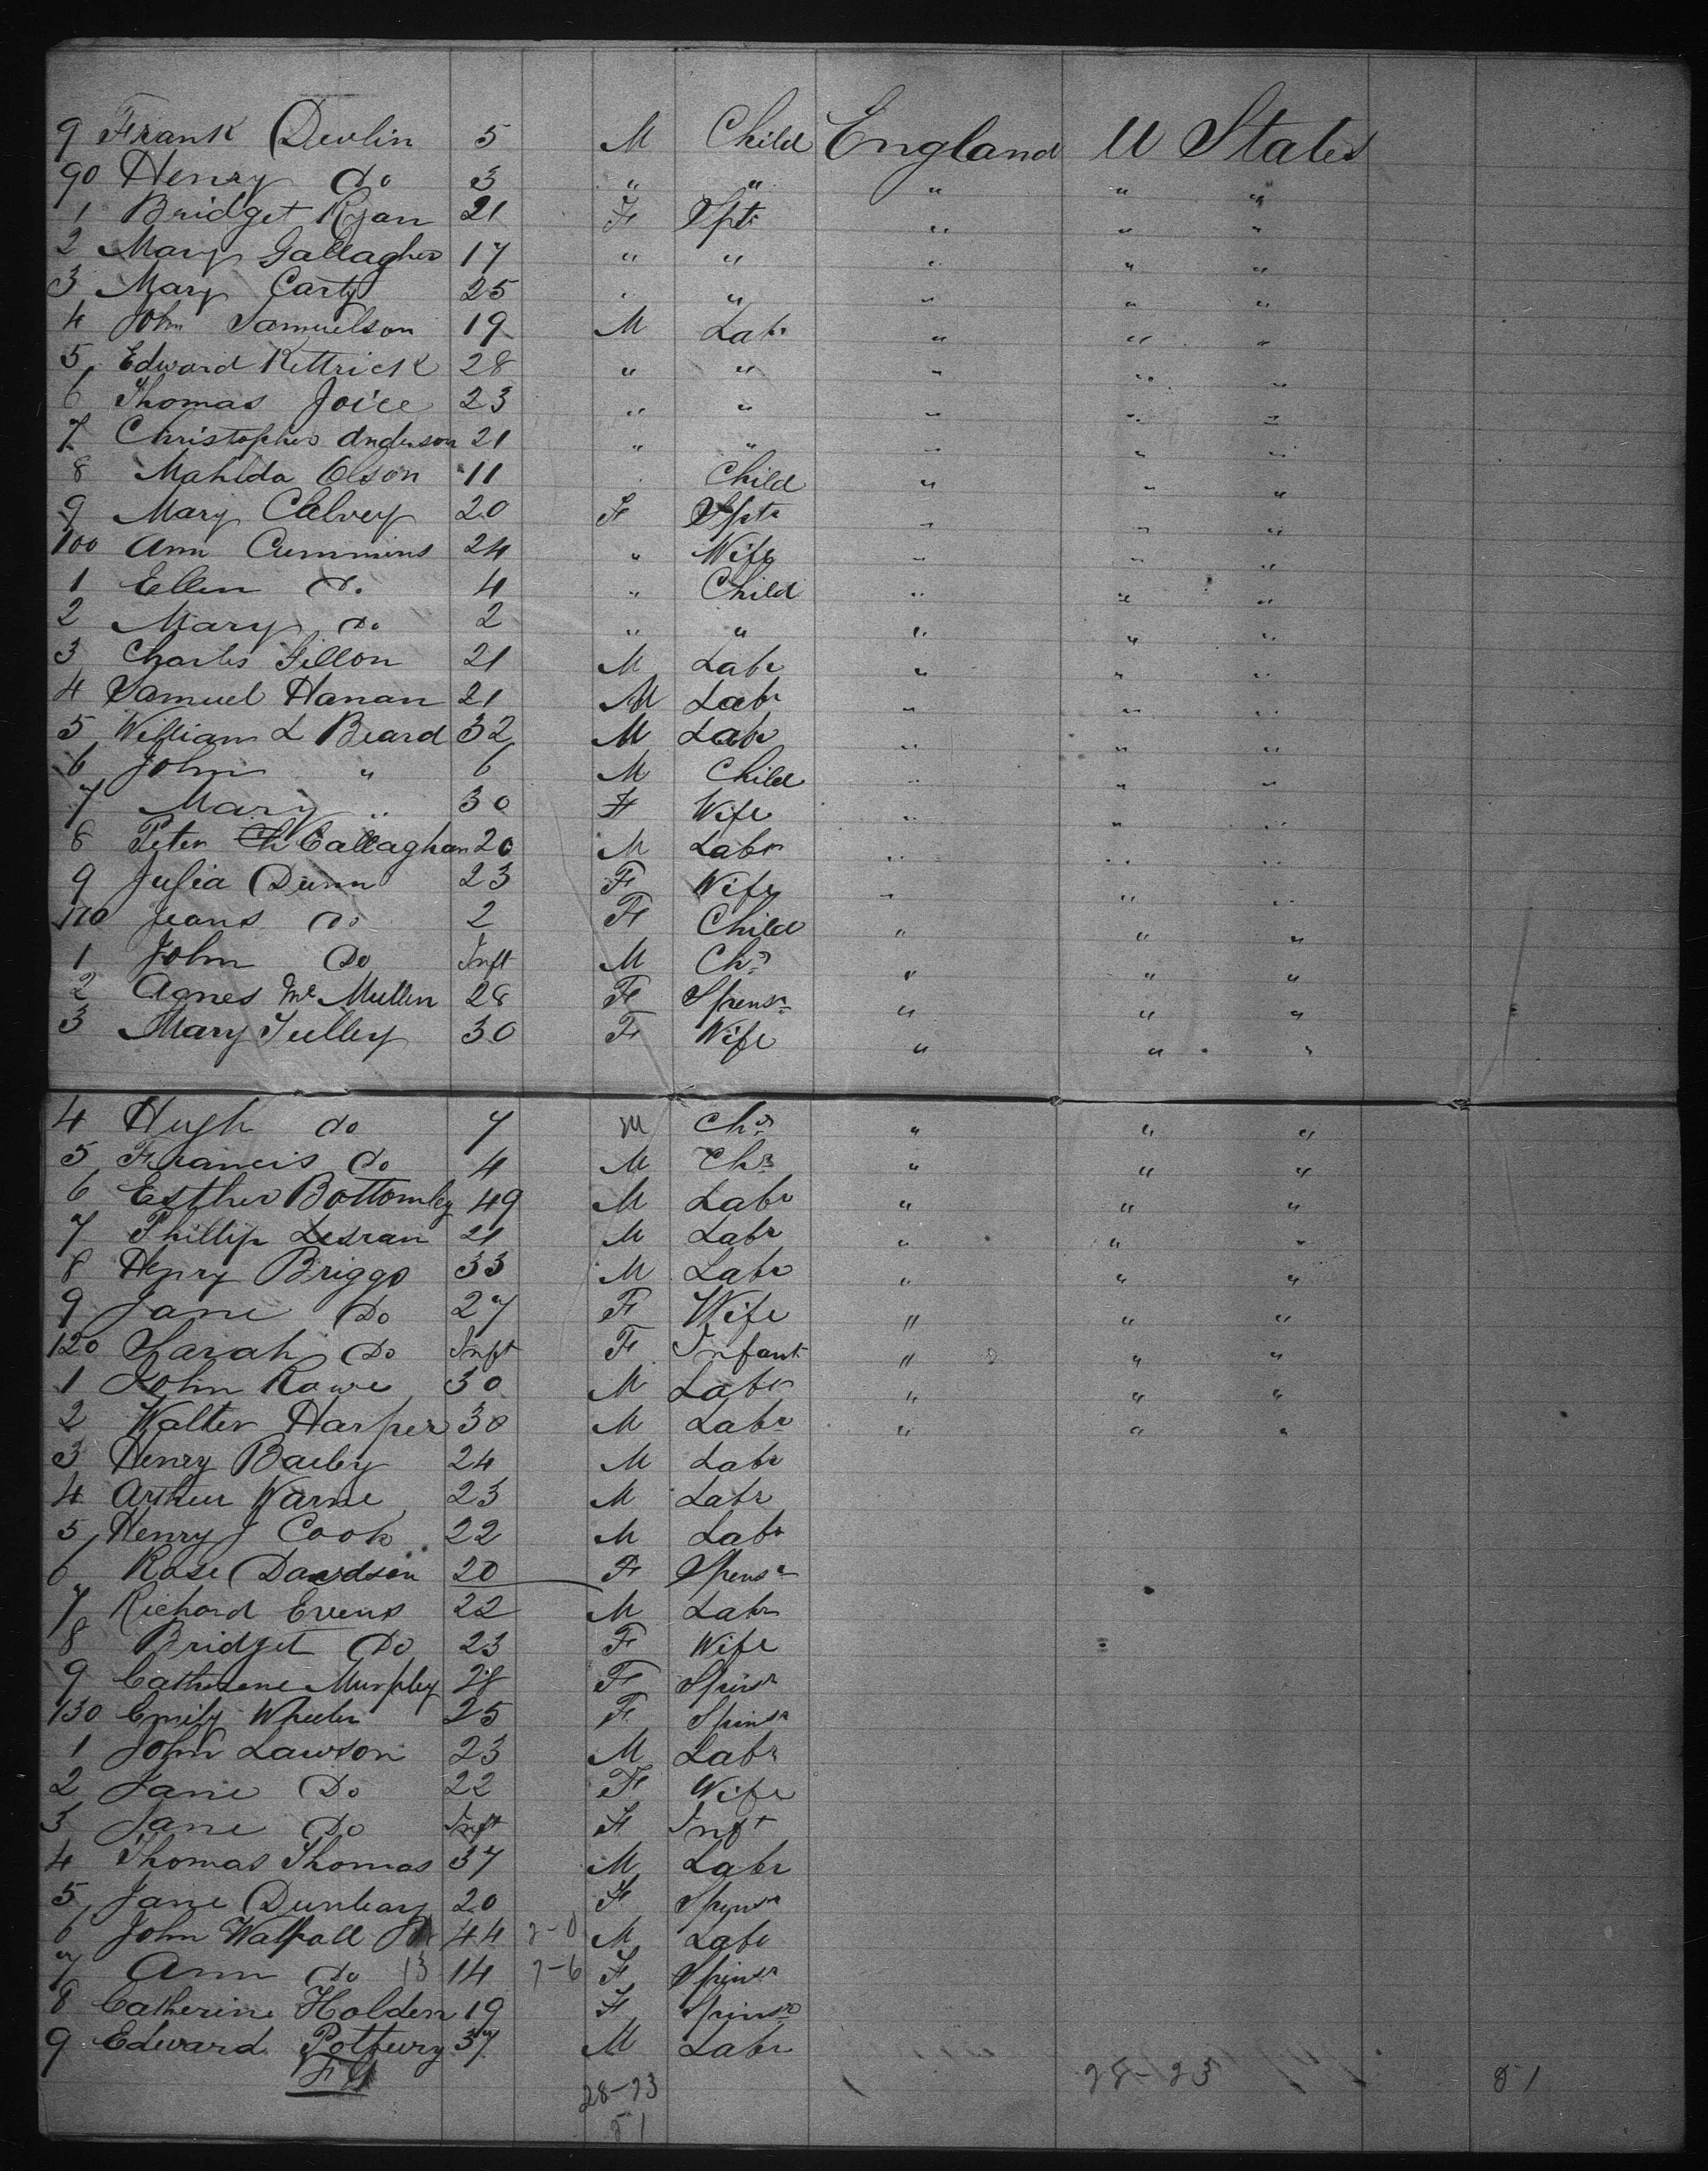 9 Frank Devlin 5 M Child England U States
90 Henry do 3 " " " " "
1 Bridget Ryan 21 F Spr " " "
2 Mary Gallagher 17 " " " " "
3 Mary Carty 25 " " " " "
4 John Samuelson 19 M Labr " " "
5 Edward Kettrick 28 " " " " "
6 Thomas Joice 23 " " " " "
7 Christopher Anderson 21 " " " " "
8 Mahlda Olson 11 Child " " "
9 Mary Calvey 20 F Spstr " " "
100 Ann Cummins 24 " Wife " " "
1 Ellen do 4 " Child " " "
2 Mary do 2 " " " " "
3 Charles Fillon 21 M Labr " " "
4 Samuel Hanan 21 M Labr " " "
5 William L Beard 32 M Labr " " "
6 John " 6 M Child " " "
7 Mary " 30 F Wife " " "
8 Peter Callaghan 20 M Labr " " "
9 Julia Dunn 23 F Wife " " "
110 Jeans do 2 F Child " " "
1 John Do Inft M Chd " " "
2 Agnes Mc Mullen 28 F Spensr " " "
3 Mary Tulley 30 F Wife " " "
4 Hugh do 7 M Chd " " "
5 Francis Do 4 M Chd " " "
6 Esther Bottomley 49 M Labr " " "
7 Phillip 21 M Labr " " "
8 Henry Briggs 33 M Labr " " "
9 Jane Do 27 F Wife " " "
120 Sarah Do Inft F Infant " " "
1 John Rowe 30 M Labr " " "
2 Walter Harper 30 M Labr " " "
3 Henry Bailey 24 M Labr
4 Arthur Warne 23 M Labr
5 Henry J Cook 22 M Labr
6 Rose Davdson 20 F Spensr
7 Richard Evens 22 M Labr
8 Bridget Do 23 F Wife
9 Catherene Murphey 28 F Spinsr
130 Emily Wheeler 25 F Spinsr
1 John Lawson 23 M Labr
2 Jane Do 22 F Wife
3 Jane Do Inft F Inft
4 Thomas Thomas 37 M Labr
5 Jane Dunbary 20 F Spensr
6 John Walfall 44 M Labr
7 Ann do 13 14 7-6 F Spinsr
8 Catherine Holden 19 F Spinsr
9 Edward Pottury 37 M Labr
28-23 28-23 51
51